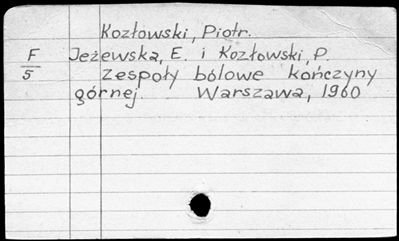 Kozłowski, Piotr.
F/5 Jeżewska, E. i Kozłowski, P.
Zespoły bólowe kończyny
górnej. Warszawa, 1960